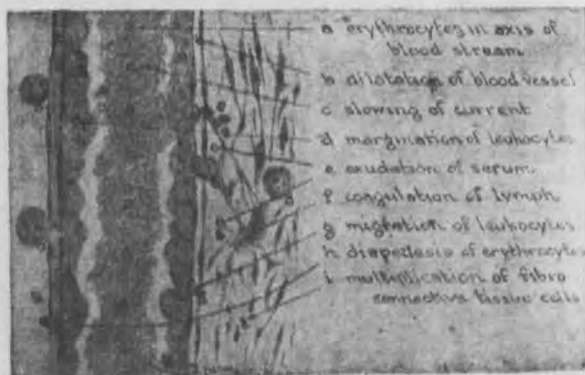 a erythrocytes in axis of
blood stream
b dilatation of blood vessel
c slowing of current
d margination of leukocytes
e exudation of serum
f coagulation of lymph
g migration of leukocytes
h diapedesis of erythrocytes
i multiplication of fibro
connective tissue cells